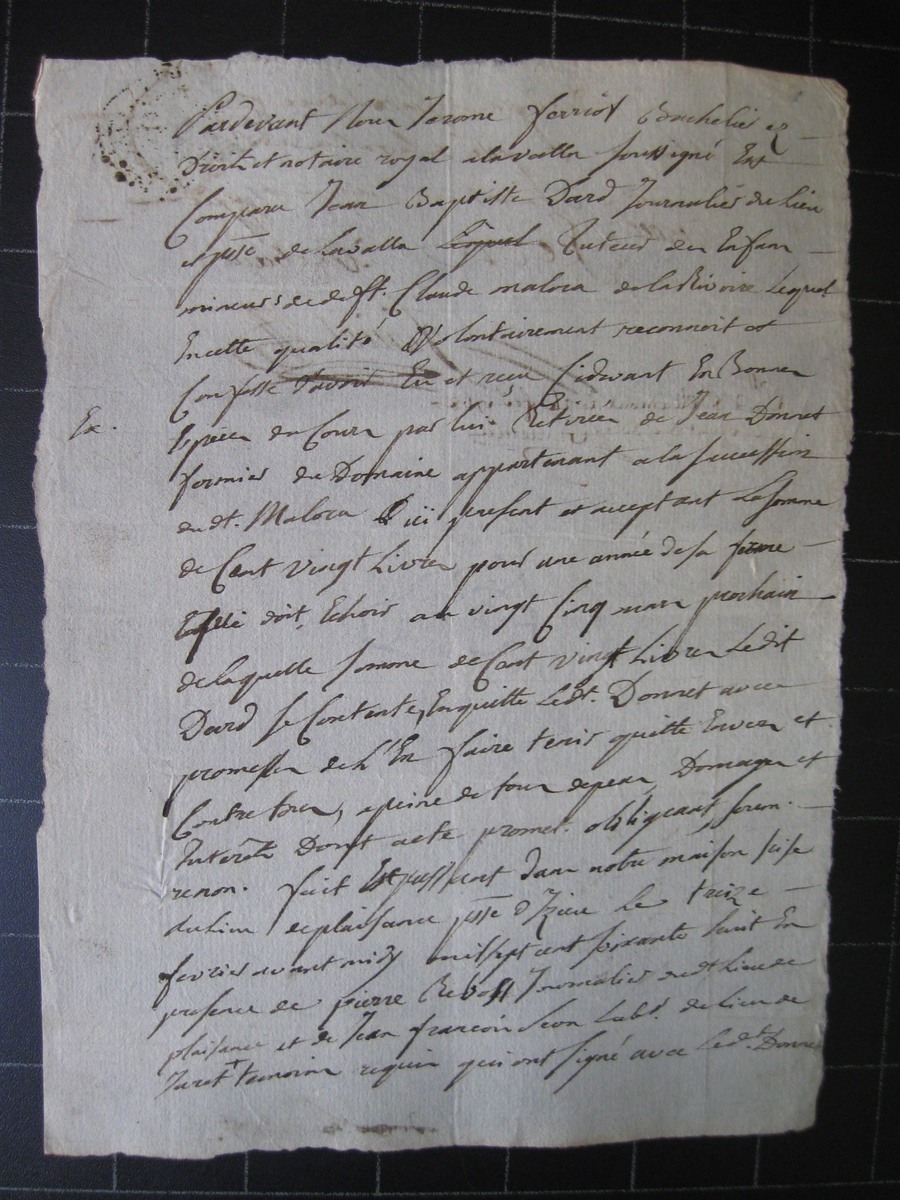 Pardevant Nous Jerome ferriol Bachelier es
Droits et notaire royal a lavalla soussigné Est
Comparu Jean Baptiste Dard Journalier du lieu
et psse de Lavalla Lequel Tuteur des Enfans
mineurs de defft. Claude maloca de la Rivoire Lequel
En cette qualité Volontairement reconnoit et
Confesse D'avoir Eu et reçu Cidevant En Bonnes
Ex. Especes de Cours par lui Retirées de Jean Donnet
fermier du Domaine appartenant a la succession
du dt. Maloca ici present et acceptant La somme
de Cent vingt Livres pour une année de sa ferme
doit Echoir au vingt Cinq mars prochain
de laquelle somme de Cent vingt Livres Ledit
Dard se Contente, En quitte Ledt. Donnet avec
promesses de L'En faire tenir quitte Envers et
Contre tous, a peine de tous depens, Domages et
Interêts Dont acte promet. obligeant soum.
renon. fait et passé dans notre maison sise
du lieu de plaisance psse d'Izieu Le treize
fevrier avant midy mil sept cent soixante huit En
presence de pierre Journalier dudt Lieu de
plaisance et de Jean françois Leon Labr. du Lieu de
Taret temoins requis qui ont signé avec Ledt. Donnet